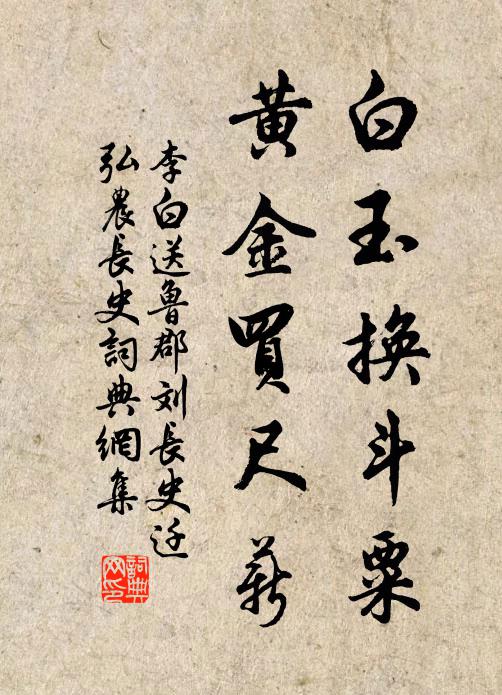 白玉換斗粟
黃金買尺薪
李白送魯郡刘長史迁
弘農長史詞典網集
詞典网印